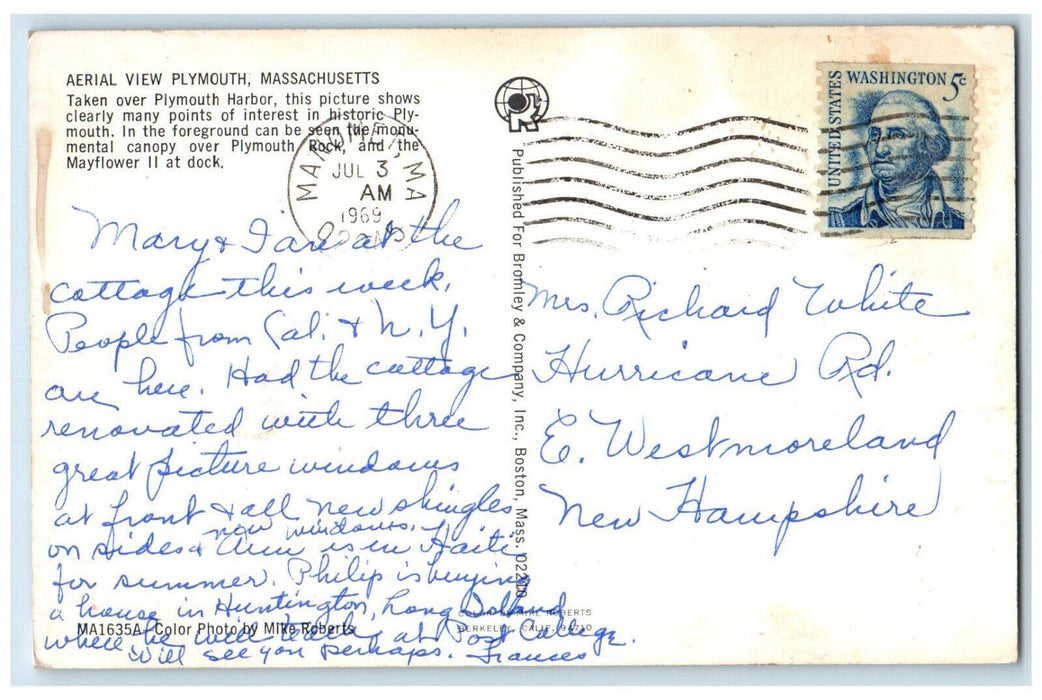 AERIAL VIEW PLYMOUTH, MASSACHUSETTS
Taken over Plymouth Harbor, this picture shows
clearly many points of interest in historic Ply-
mouth. In the foreground can be seen the monu-
mental canopy over Plymouth Rock, and the
Mayflower II at dock.
MA
JUL 3
AM
1969
UNITED STATES
WASHINGTON 5c
Published For Bromley & Company, Inc., Boston, Mass. 02210
Mary & I are at the
cottage this week.
People from Cal. & N.Y.
are here. Had the cottage
renovated with three
great picture windows
at front & all new shingles
on sides & new windows. Ann is in Haiti
for summer. Philip is buying
a house in Huntington, Long Island
where he will teach at Post College.
Will see you perhaps. Frances
Mrs. Richard White
Hurricane Rd.
E. Westmoreland
New Hampshire
MA1635A Color Photo by Mike Roberts
COLOR BY MIKE ROBERTS
BERKELEY, CALIF. 94710